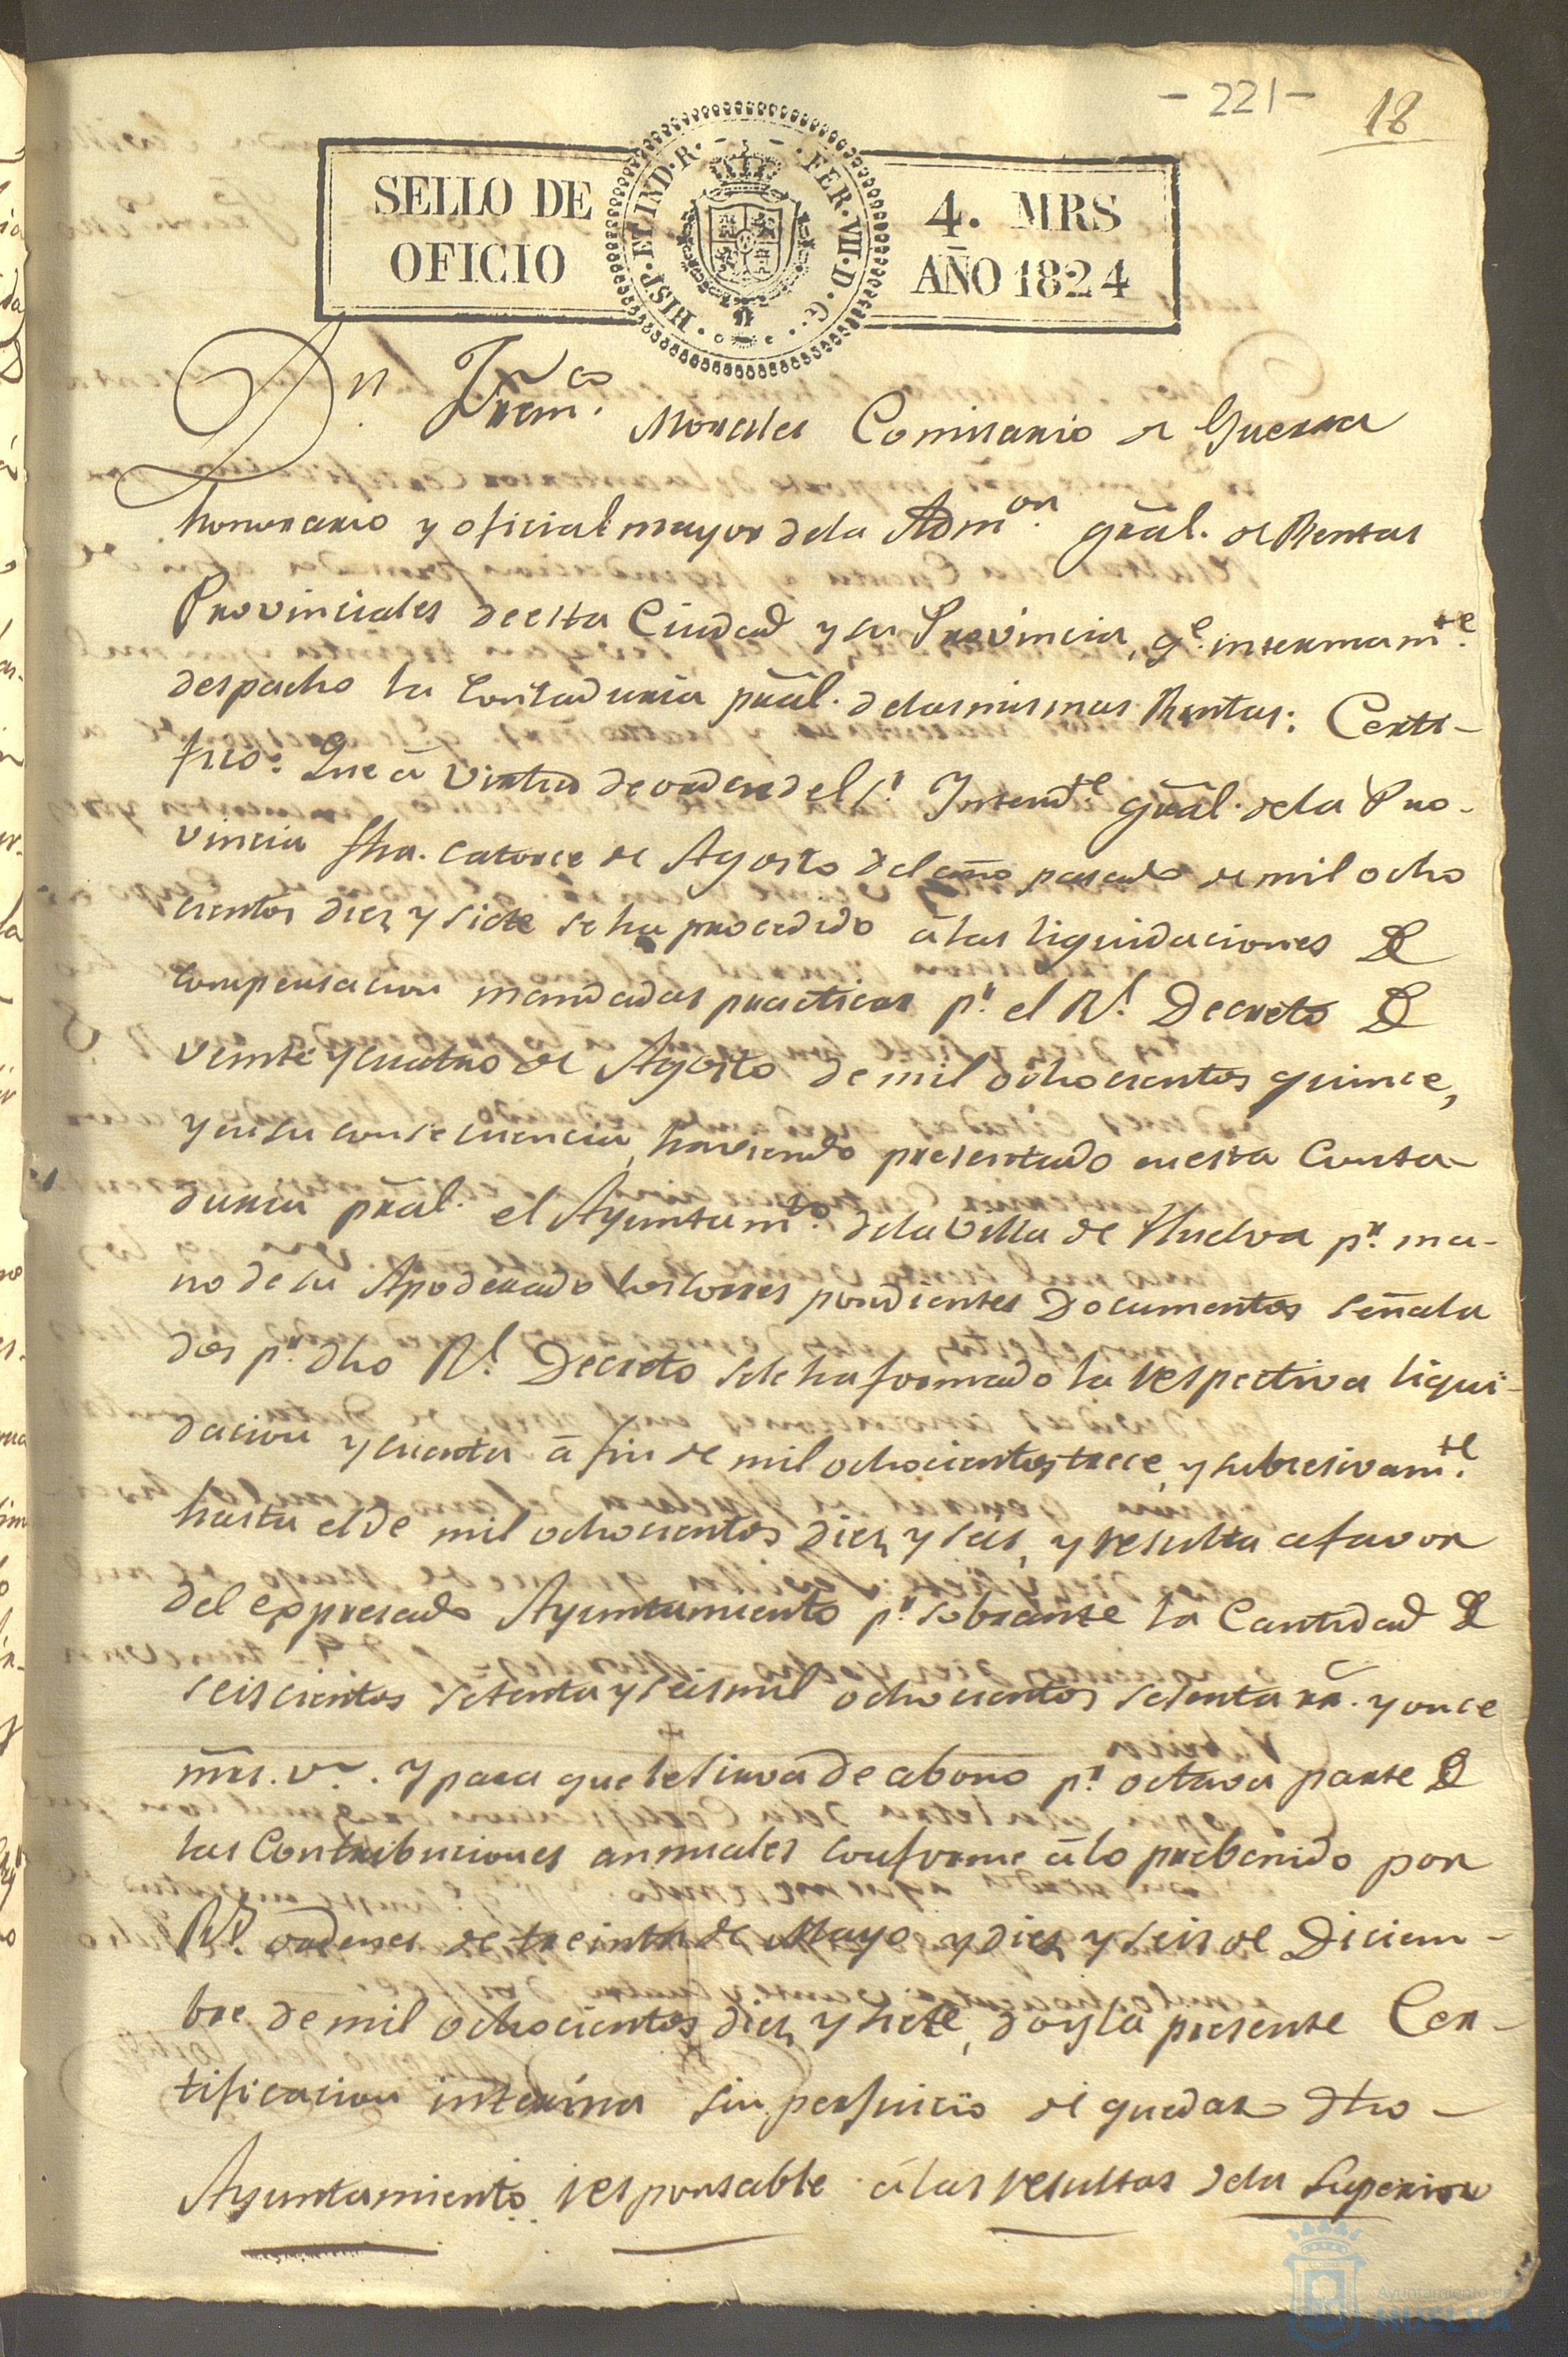 - 221 -
18
SELLO DE OFICIO
HISP. ET IND. R. FER. VII. D. G.
4. MRS
AÑO 1824
Dn. Franco. Morales Comisario de Guerra
honorario y oficial mayor dela Admon. gral. de Rentas
Provinciales de esta Ciudad y su Provincia, qe. internamte.
despacho la Contaduria pral. delas mismas Rentas: Certi-
fico: Que â virtud de orden del Sr. Intendte. gral. dela Pro-
vincia fha. catorce de Agosto del año pasado de mil ocho
cientos diez y siete se ha procedido â las liquidaciones de
compensacion mandadas practicar pr. el Rl. Decreto de
veinte y cuatro de Agosto de mil ochocientos quince,
y en su consecuencia, haviendo presentado en esta Conta-
duria pral. el Ayuntamto. dela Villa de Huelva pr. ma-
no de su Apoderado los corres pondientes Documentos señala
dos pr. dho Rl. Decreto se le ha formado la respectiva liqui-
dacion y cuenta â fin de mil ochocientos trece, y subcesivamte.
hasta el de mil ochocientos diez y seis, y resulta a favor
del expresado Ayuntamiento pr. sobrante la Cantidad de
seiscientos setenta y seis mil ochocientos setenta rr. y once
mrs. vn. Y para que le sirva de abono pr. octava parte de
las Contribuciones annuales conforme â lo prebenido por
Rs. ordenes de treinta de Mayo y diez y seis de Diciem-
bre de mil ochocientos diez y siete, doy la presente Cer-
tificacion interina sin perjuicio de quedar dho -
Ayuntamiento responsable â las resultas dela Superior
Ayuntamiento de
HUELVA